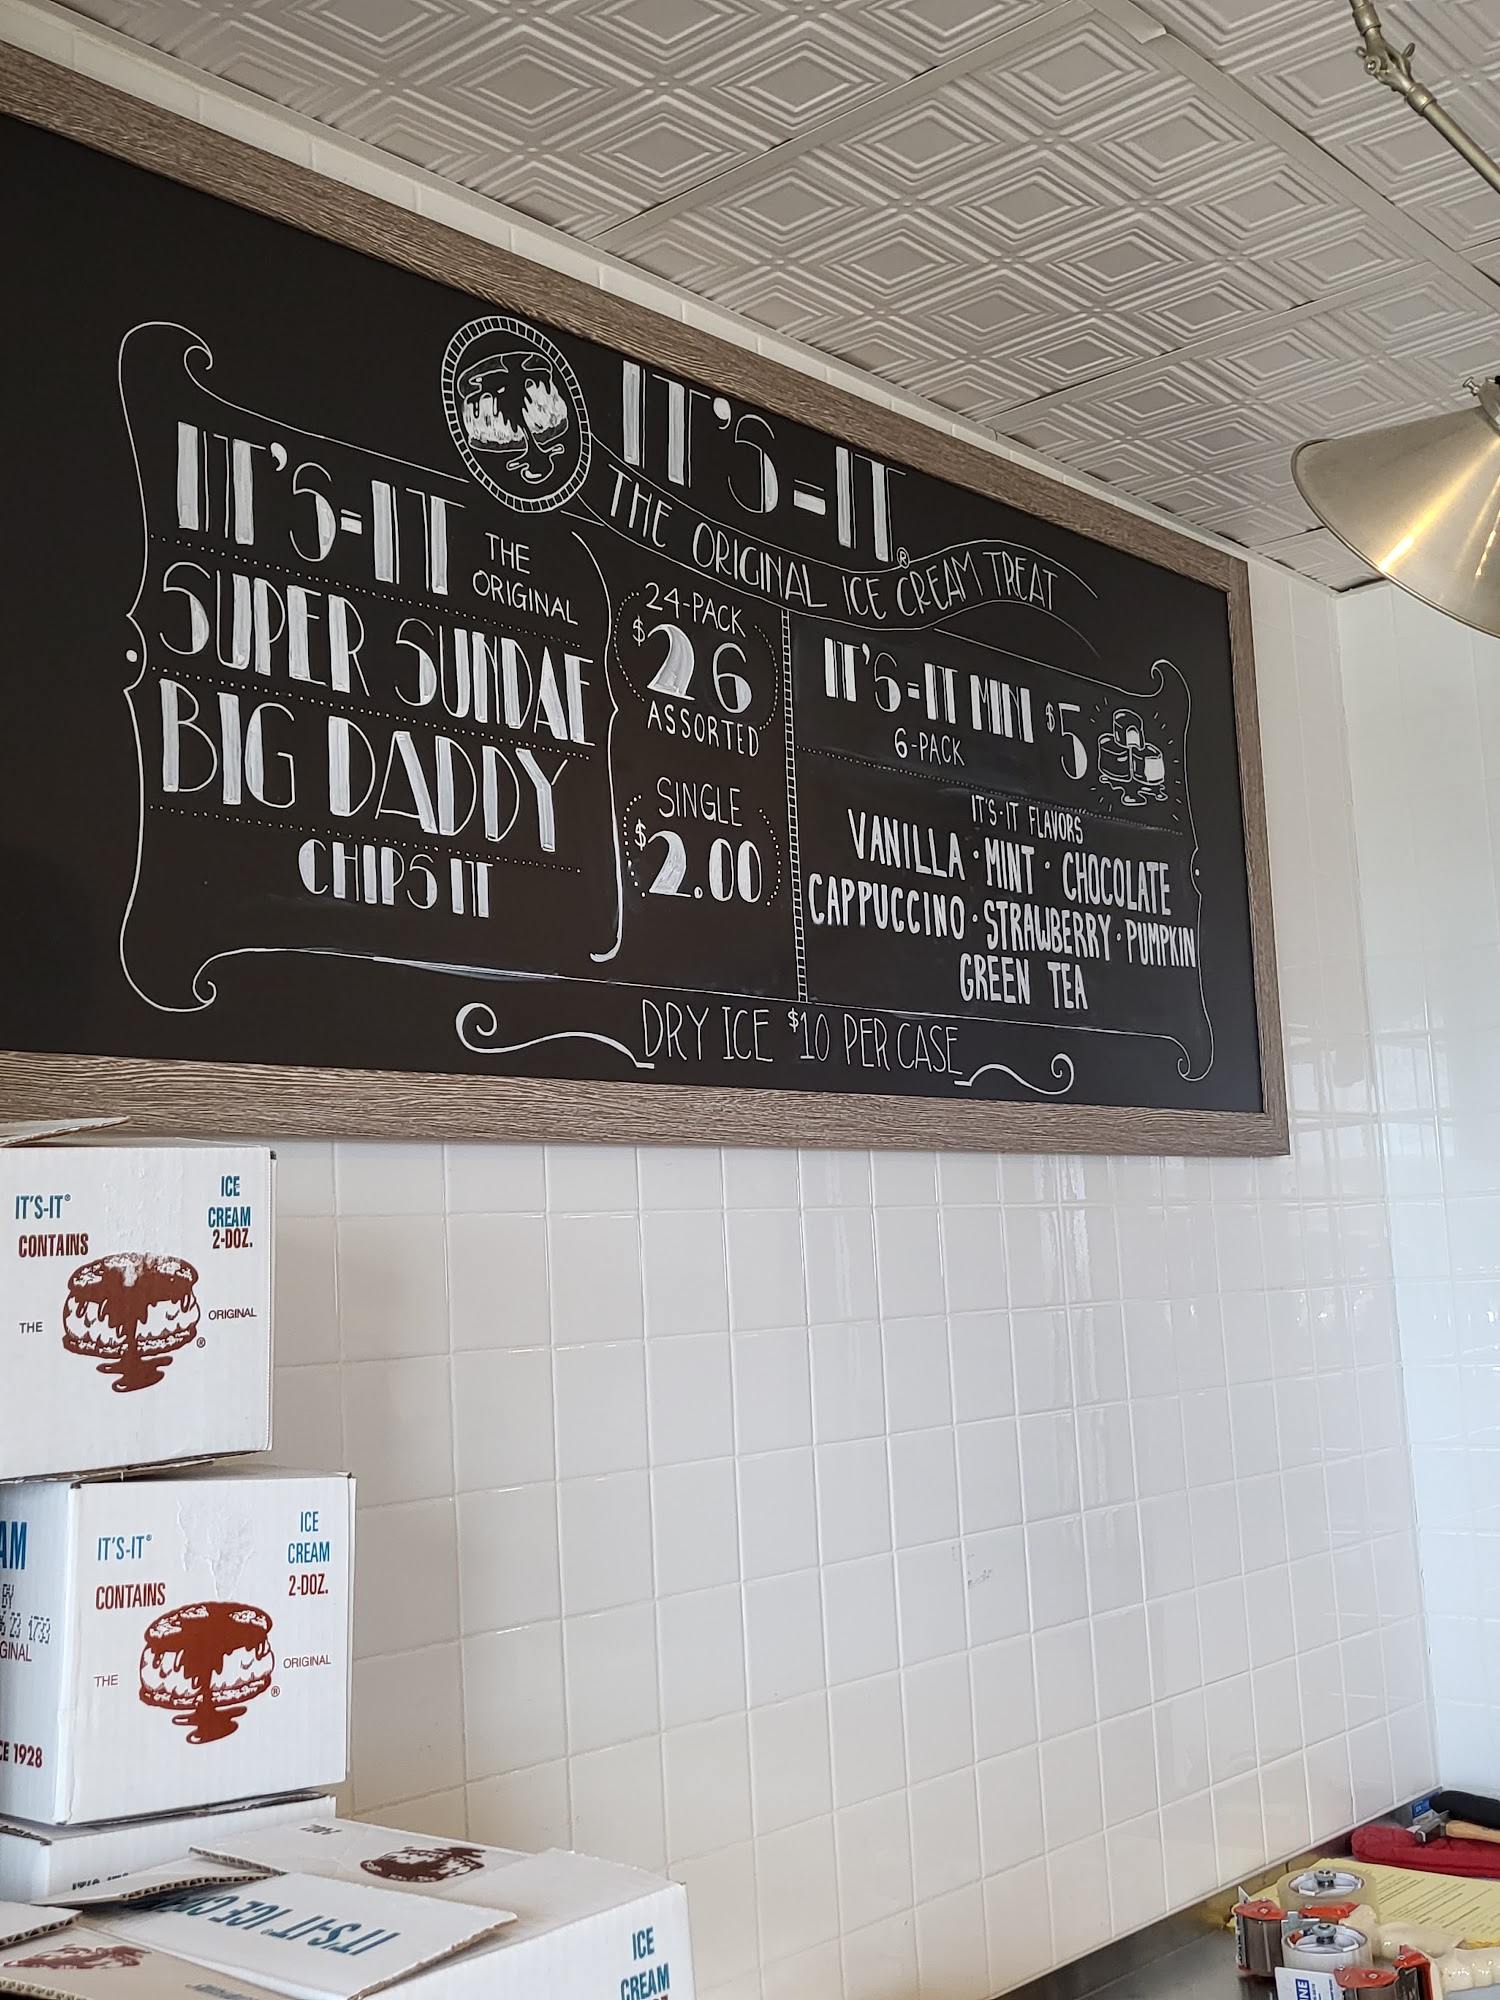 IT'S-IT®
THE ORIGINAL ICE CREAM TREAT
IT'S-IT THE ORIGINAL
SUPER SUNDAE
BIG DADDY
CHIPS IT
24-PACK
$26
ASSORTED
SINGLE
$2.00
IT'S-IT MINI $5
6-PACK
IT'S-IT FLAVORS
VANILLA · MINT · CHOCOLATE
CAPPUCCINO · STRAWBERRY · PUMPKIN
GREEN TEA
DRY ICE $10 PER CASE
IT'S-IT®
CONTAINS
ICE
CREAM
2-DOZ.
THE ORIGINAL
®
AM
BY
23 1733
GINAL
CE 1928
IT'S-IT®
CONTAINS
ICE
CREAM
2-DOZ.
THE ORIGINAL
®
IT'S-IT ICE CREAM
ICE
CREAM